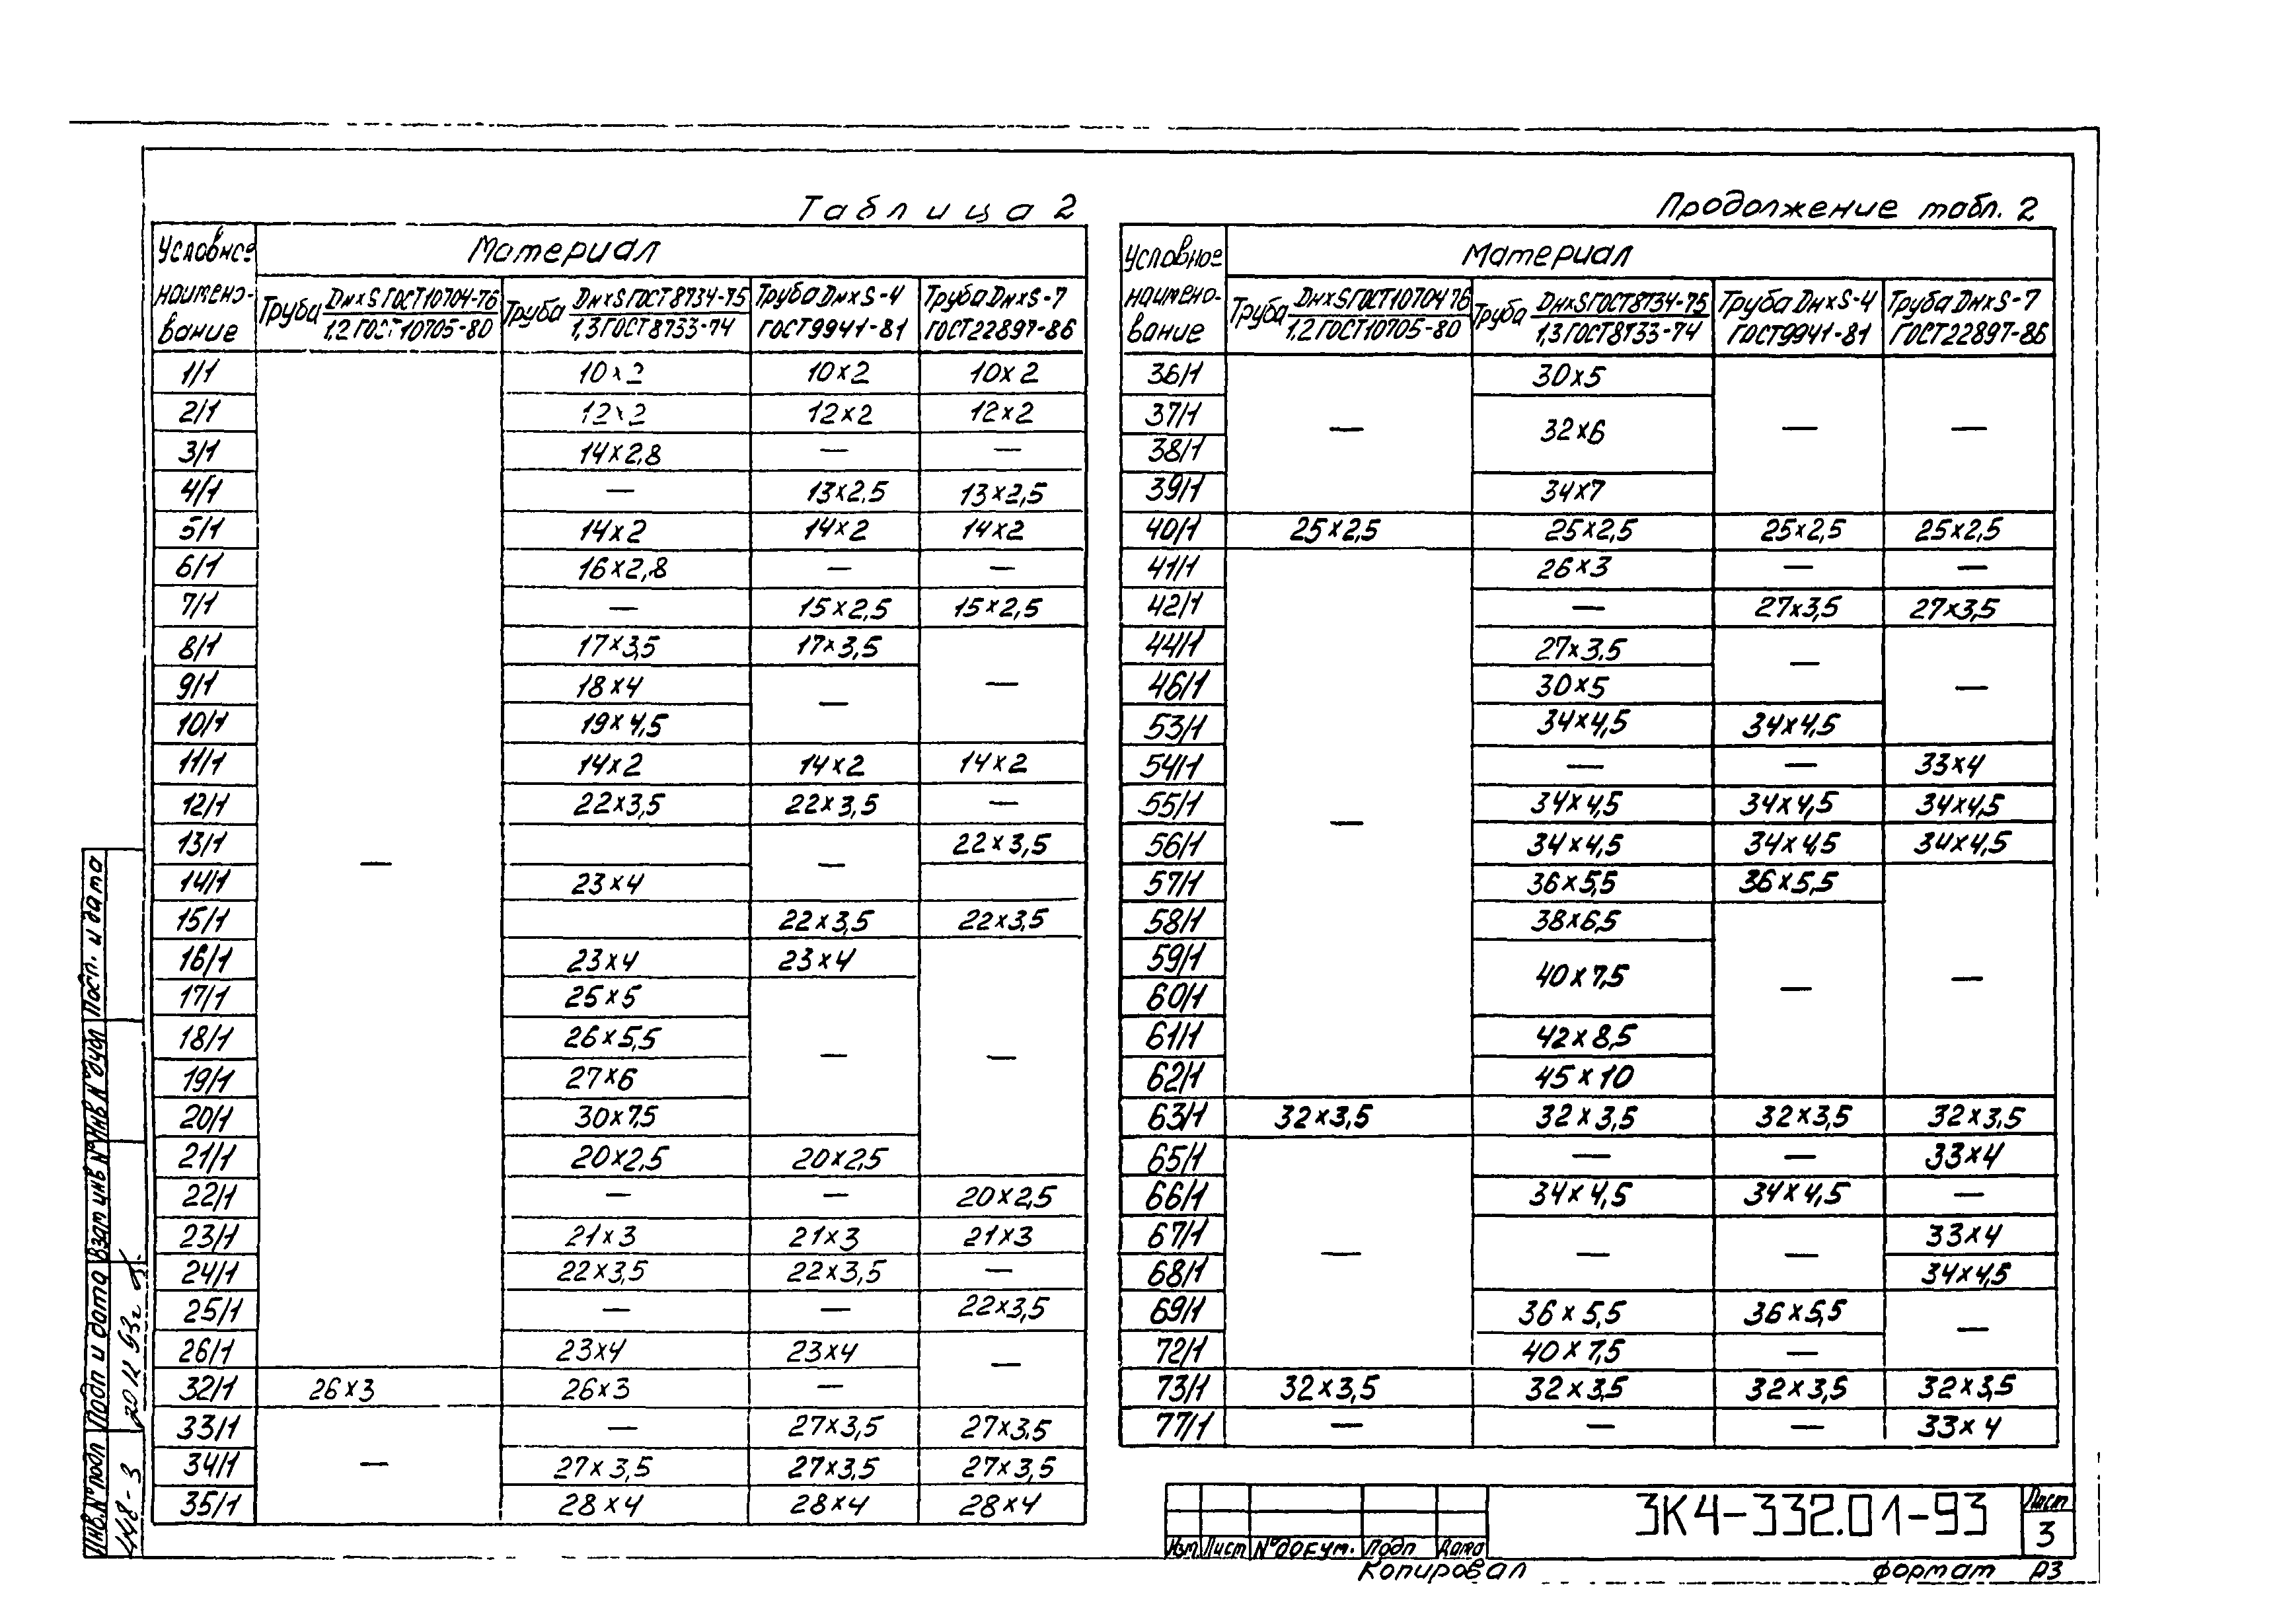 Таблица 2
Условное наименование | Материал
Труба Dн×S ГОСТ 10704-76 / 1,2 ГОСТ 10705-80 | Труба Dн×S ГОСТ 8734-75 / 1,3 ГОСТ 8733-74 | Труба Dн×S-4 ГОСТ 9941-81 | Труба Dн×S-7 ГОСТ 22897-86
1/1 10×2 10×2 10×2
2/1 12×2 12×2 12×2
3/1 14×2,8 — —
4/1 — 13×2,5 13×2,5
5/1 14×2 14×2 14×2
6/1 16×2,8 — —
7/1 — 15×2,5 15×2,5
8/1 17×3,5 17×3,5
9/1 18×4 —
10/1 19×4,5 —
11/1 14×2 14×2 14×2
12/1 22×3,5 22×3,5 —
13/1 22×3,5
— —
14/1 23×4
15/1 22×3,5 22×3,5
16/1 23×4 23×4
17/1 25×5
18/1 26×5,5
— —
19/1 27×6
20/1 30×7,5
21/1 20×2,5 20×2,5
22/1 — — 20×2,5
23/1 21×3 21×3 21×3
24/1 22×3,5 22×3,5 —
25/1 — — 22×3,5
26/1 23×4 23×4
—
32/1 26×3 26×3 —
33/1 — 27×3,5 27×3,5
34/1 — 27×3,5 27×3,5 27×3,5
35/1 28×4 28×4 28×4
Продолжение табл. 2
Условное наименование | Материал
Труба Dн×S ГОСТ 10704 76 / 1,2 ГОСТ 10705-80 | Труба Dн×S ГОСТ 8734-75 / 1,3 ГОСТ 8733-74 | Труба Dн×S-4 ГОСТ 9941-81 | Труба Dн×S-7 ГОСТ 22897-86
36/1 30×5
37/1
— 32×6 — —
38/1
39/1 34×7
40/1 25×2,5 25×2,5 25×2,5 25×2,5
41/1 26×3 — —
42/1 — 27×3,5 27×3,5
44/1 27×3,5
—
46/1 30×5 —
53/1 34×4,5 34×4,5
54/1 — — 33×4
55/1 34×4,5 34×4,5 34×4,5
—
56/1 34×4,5 34×4,5 34×4,5
57/1 36×5,5 36×5,5
58/1 38×6,5
59/1
40×7,5 — —
60/1
61/1 42×8,5
62/1 45×10
63/1 32×3,5 32×3,5 32×3,5 32×3,5
65/1 — — 33×4
66/1 34×4,5 34×4,5 —
67/1 33×4
— — —
68/1 34×4,5
69/1 36×5,5 36×5,5
—
72/1 40×7,5 —
73/1 32×3,5 32×3,5 32×3,5 32×3,5
77/1 — — — 33×4
Инв.№подл Подп и дата Взам инв № Инв №дубл Подп. и дата
448-3
3К4-332.01-93
Лист
3
Изм Лист №докум. Подп Дата
Копировал формат А3